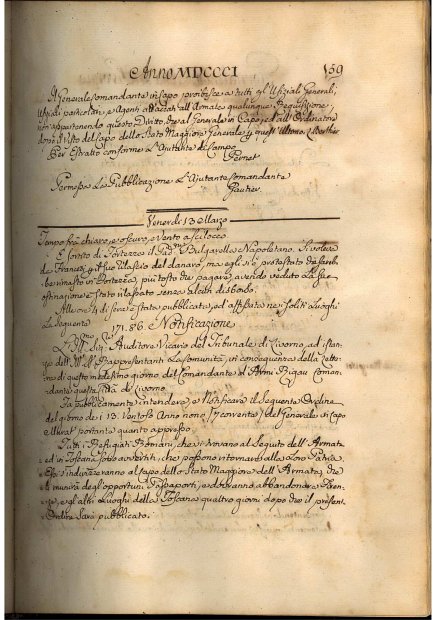 Anno MDCCCI 159
Il Generale Comandante in Capo proibisce a tutti gl'Ufiziali Generali,
Ufiziali particolari, e Agenti attaccati all'Armata qualunque Requisizione,
non appartenendo questo Diritto, che al Generale in Capo, ed all'Ordinatore
dopo il Visto del Capo dello Stato Maggiore Generale
Per Estratto conforme L'Ajutante di Campo
Pernet
Permessa La Pubblicazione L'Ajutante Comandante
Gautier
Venerdì 13 Marzo
Tempo frà chiaro, e oscuro, e Vento a Scilocco
È sortito di Fortezza il Bulgarella Napoletano. Si voleva
da' Francesi il rilascio del danaro, ma egli si è protestato, che sareb-
be rimasto in Fortezza, più tosto che pagare, avendo veduto La sua
ostinazione è stato rilasciato senza alcun disborso.
Alle ore 4 di sera è Stata pubblicata, ed affissata ne' Soliti Luoghi
La Seguente
N. 86 Notificazione
L'Ill.mo Sig. Auditore Vicario del Tribunale di Livorno, ad istan-
za dell' Rappresentanti La Comunità, in consequenza della Lette-
ra di questo medesimo giorno del Comandante d'Armi Rigau Coman-
dante questa Città di Livorno.
Fa pubblicamente intendere, e Notificare il Seguente Ordine
del giorno de' 13. Ventoso Anno nono del Generale in Capo
Murat portante quanto appresso
Tutti i Refugiati Romani, che si trovano al Seguito dell'Armata,
ed in Toscana sono avvertiti, che possono ritornare alla Loro Patria.
Essi s'indirizzeranno al Capo dello Stato Maggiore dell'Armata, che
li munirà degl'opportuni Passaporti, e dovranno abbandonare Firen-
ze, e gl'altri Luoghi della Toscana quattro giorni dopo che il presente
Ordine Sarà pubblicato.